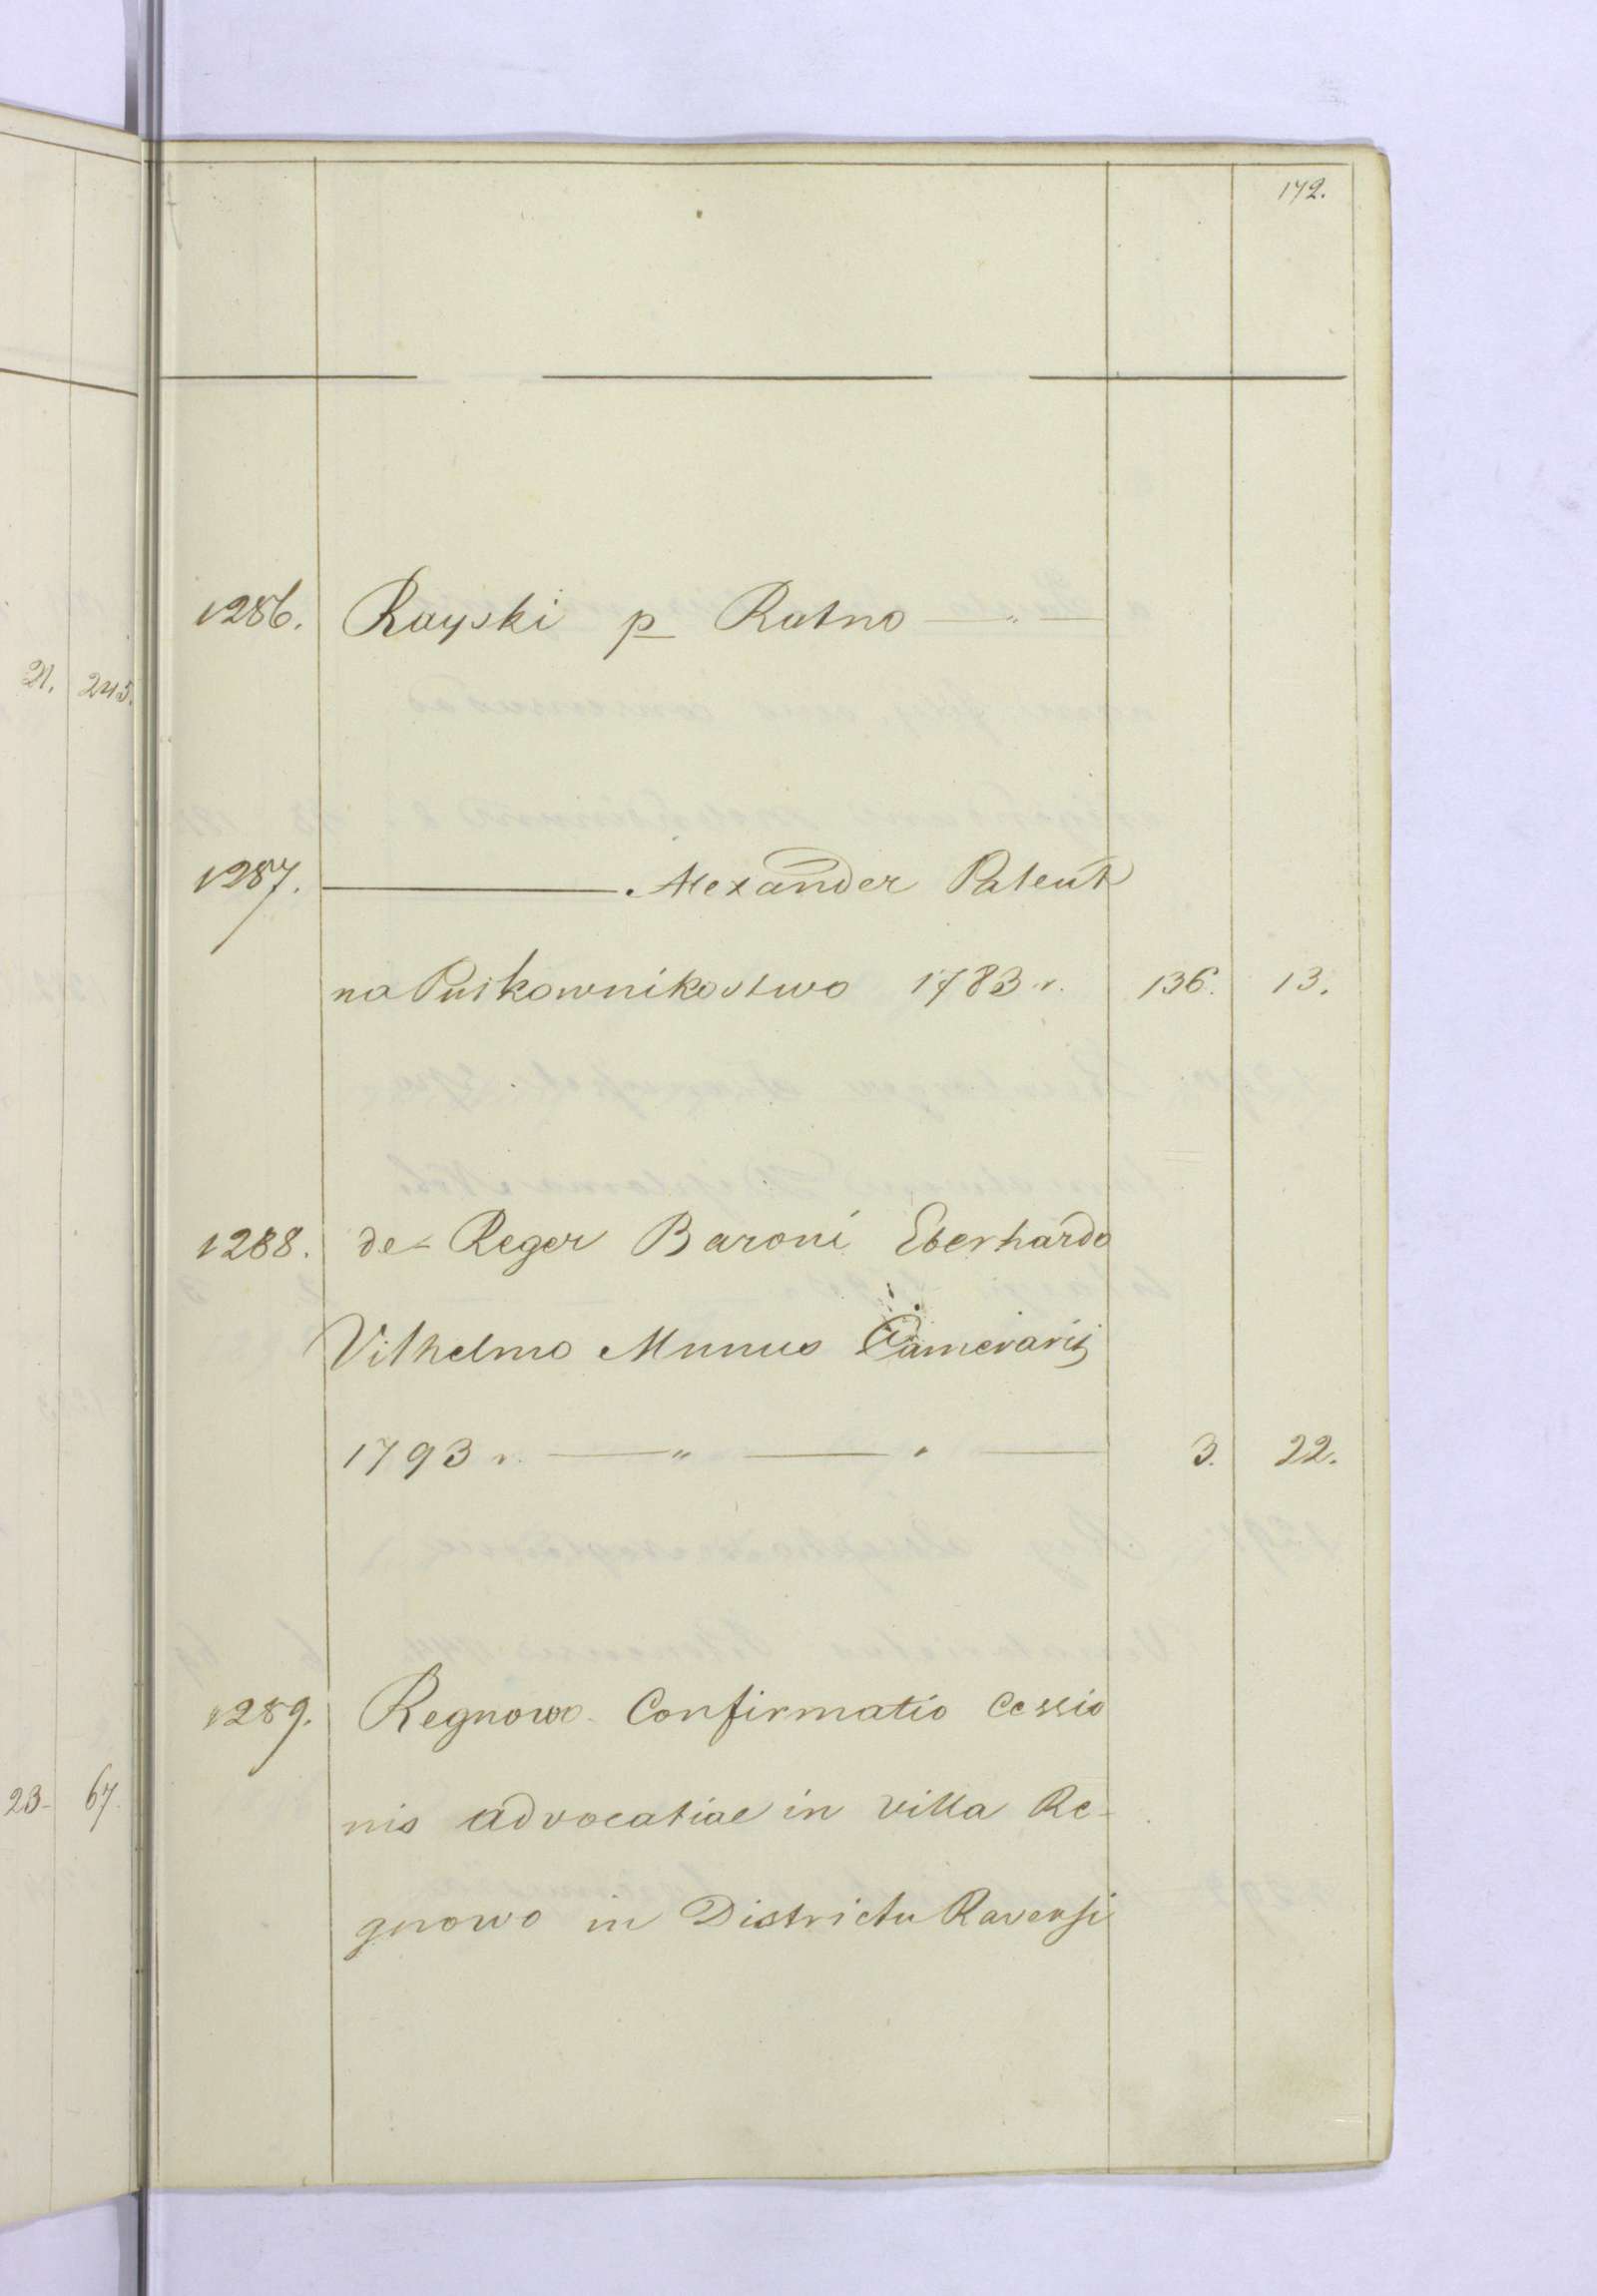 172.
1286. Rayski p Ratno — „ —
21. 245.
1287. ——— Alexander Patent
na Pułkownikostwo 1783 r. 136. 13.
1288. de Reger Baroni Eberhardo
Vilhelmo Munus Camerarij
1793 r. — „ — „ — 3. 22.
1289. Regnowo Confirmatio Cessio
23- 67.
nis advocatiae in villa Re-
gnowo in Districtu Ravensi